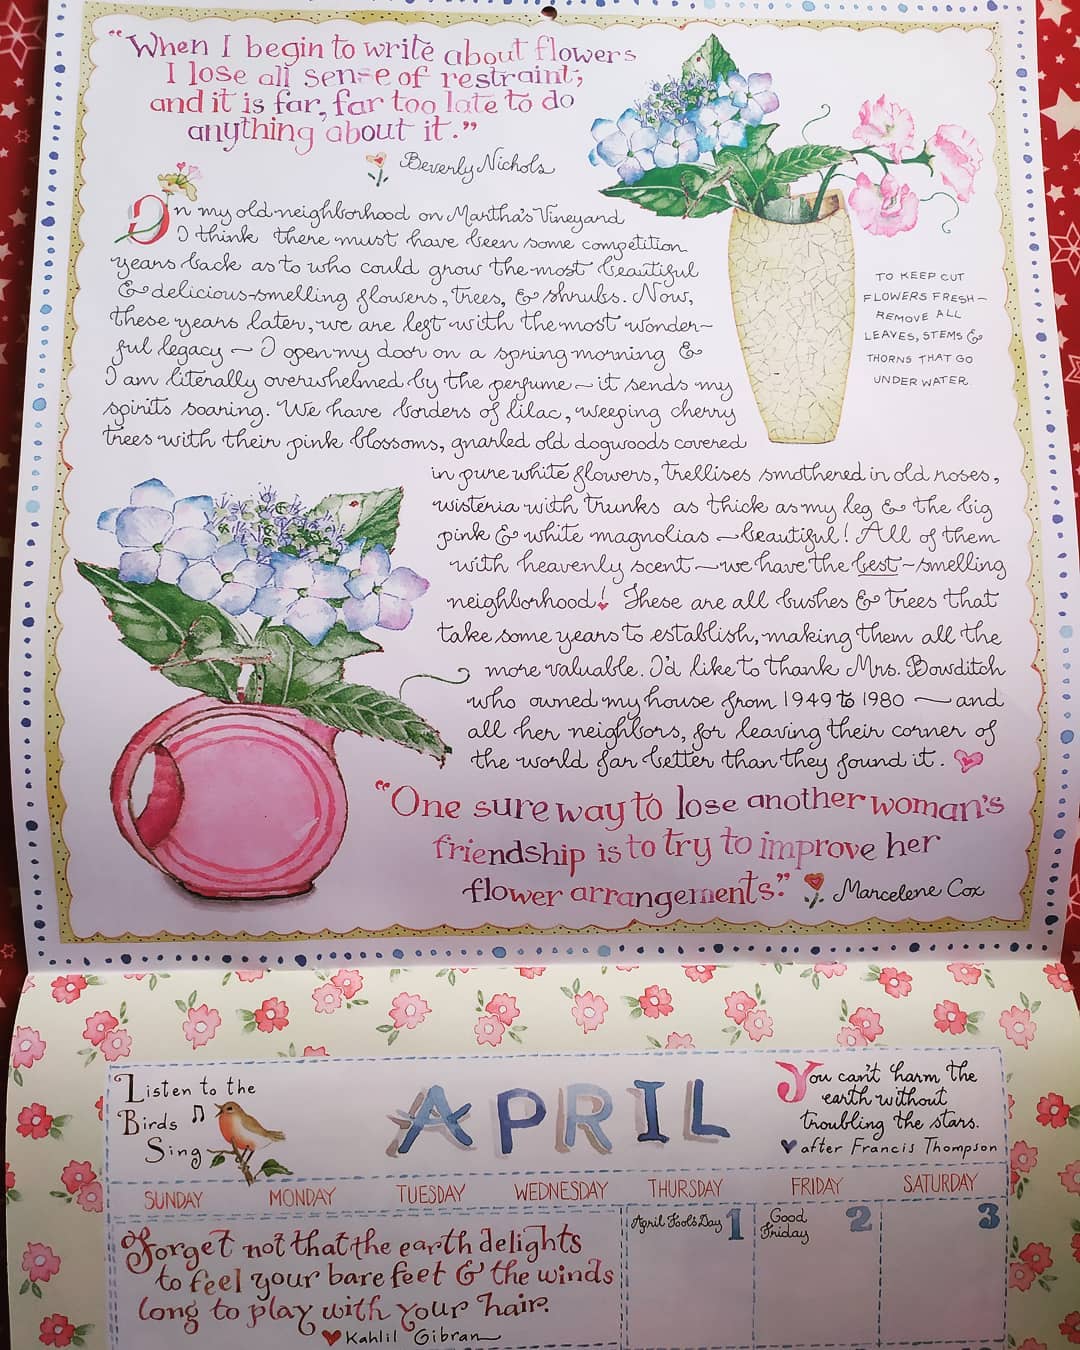 "When I begin to write about flowers
I lose all sense of restraint;
and it is far, far too late to do
anything about it."
Beverly Nichols
In my old neighborhood on Martha's Vineyard
I think there must have been some competition
years back as to who could grow the most beautiful
& delicious-smelling flowers, trees, & shrubs. Now,
these years later, we are left with the most wonder-
ful legacy ~ I open my door on a spring morning &
I am literally overwhelmed by the perfume ~ it sends my
spirits soaring. We have borders of lilac, weeping cherry
trees with their pink blossoms, gnarled old dogwoods covered
in pure white flowers, trellises smothered in old roses,
wisteria with trunks as thick as my leg & the big
pink & white magnolias ~ beautiful! All of them
with heavenly scent ~ we have the best-smelling
neighborhood! These are all bushes & trees that
take some years to establish, making them all the
more valuable. I'd like to thank Mrs. Bowditch
who owned my house from 1949 to 1980 — and
all her neighbors, for leaving their corner of
the world far better than they found it.
TO KEEP CUT
FLOWERS FRESH—
REMOVE ALL
LEAVES, STEMS &
THORNS THAT GO
UNDER WATER.
"One sure way to lose another woman's
friendship is to try to improve her
flower arrangements."
Marcelene Cox
Listen to the
Birds
Sing
APRIL
You can't harm the
earth without
troubling the stars.
after Francis Thompson
SUNDAY MONDAY TUESDAY WEDNESDAY THURSDAY FRIDAY SATURDAY
Forget not that the earth delights
to feel your bare feet & the winds
long to play with your hair.
Kahlil Gibran
April Fool's Day 1
Good
Friday 2
3